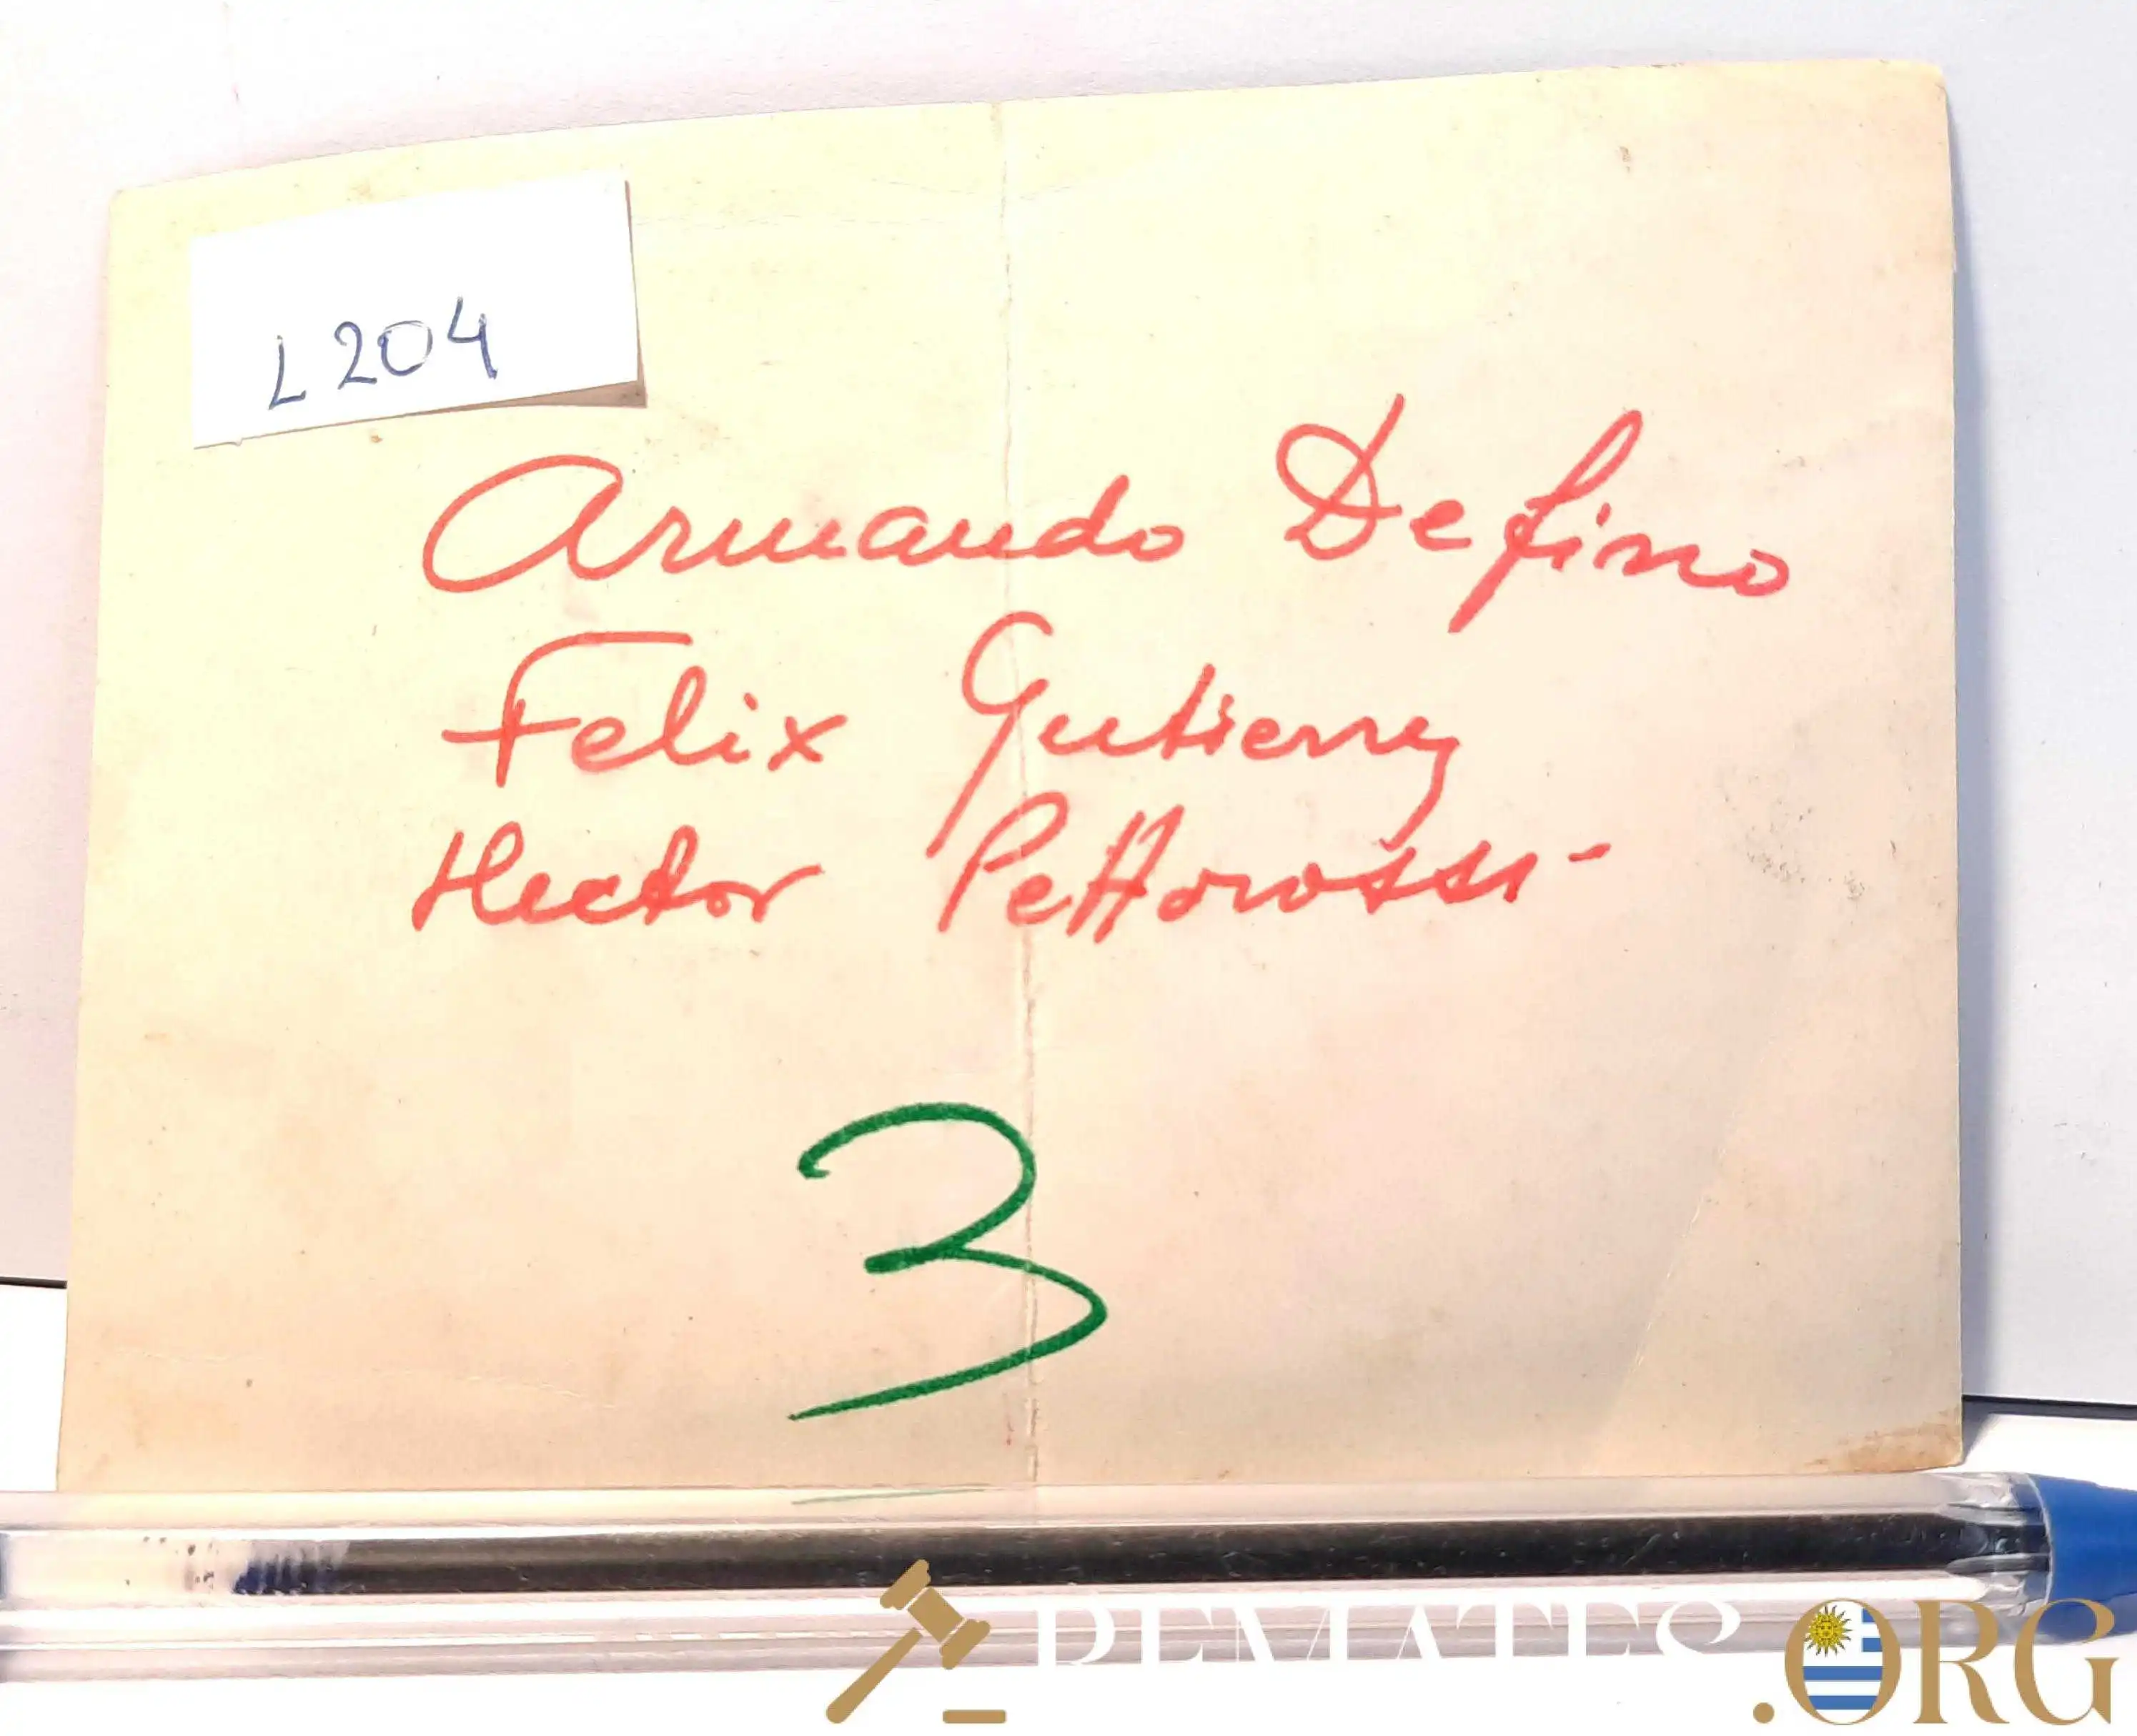 L204
Armando Defino
Felix Gutierrez
Hector Pettorossi-
3
REMATES.ORG